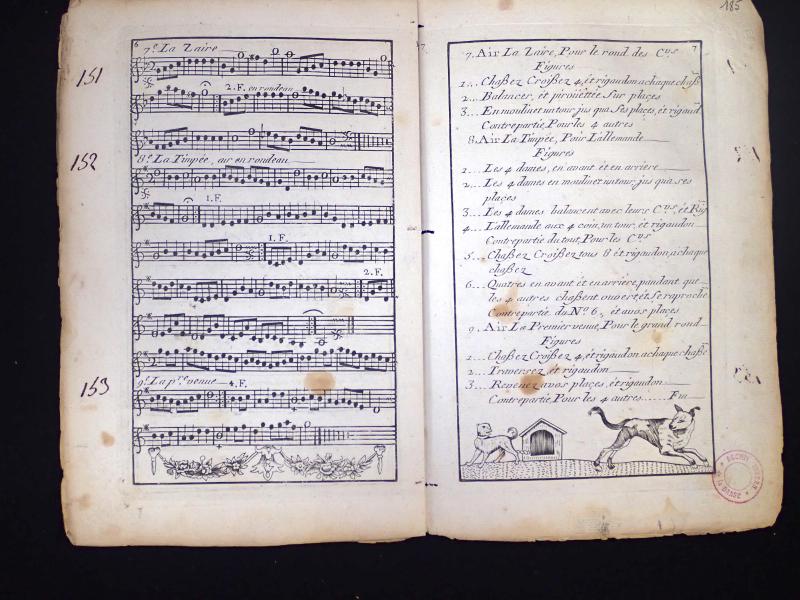 6
7.e La Zaire
151
2. F. en rondeau
152
8.e La Pimpée, air en rondeau
1. F.
1. F.
2. F.
153
9.e La p.re venue 4. F.
185
7
7. Air La Zaire, Pour le rond des C.us
Figures
1... Chaßez Croißez 4, et rigaudon a chaque chaß
2... Balancer, et piroüettée Sur places
3... En moulinet un tour, jus qua Ses places, et rigaud
Contrepartie, Pour les 4 autres
8. Air La Pimpée, Pour Lallemande
Figures
1... Les 4 dames, en avant et en arriere
2... Les 4 dames en moulinet un tour, jus qua ses
places
3... Les 4 dames balancent avec leurs C.us, et Rig
4... Lallemande aux 4 coin, un tour, et rigaudon
Contrepartie du tout, Pour les C.us
5... Chaßez Croißez tous 8 et rigaudon, a chaque
chaßez
6... Quatres en avant et en arriere, pandant que
les 4 autres chaßent ouvert, et Se raproche
Contrepartie du N.o 6, et avos places
9. Air La Premier venue, Pour le grand rond
Figures
1... Chaßez Croißez 4, et rigaudon a chaque chaße
2... Traversez, et rigaudon
3... Revenez avos places, et rigaudon
Contrepartie, Pour les 4 autres...... Fin